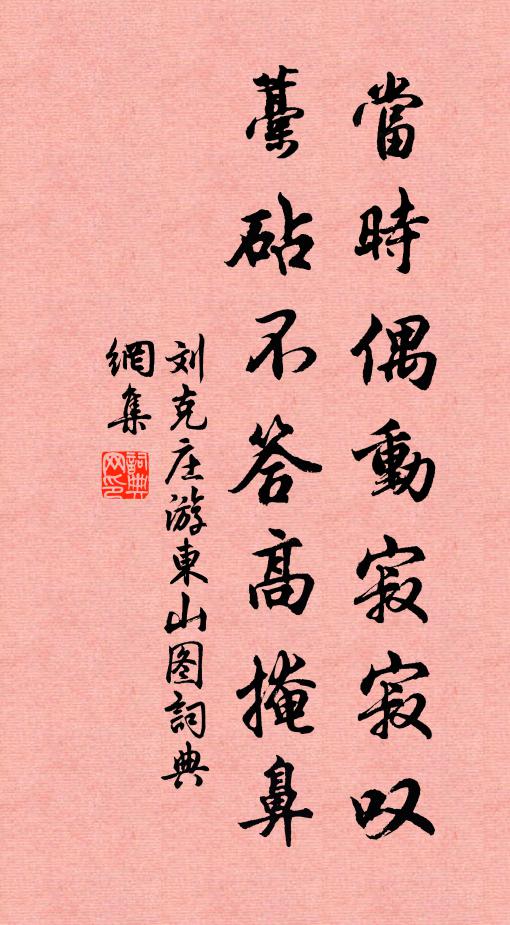 當時偶動寂寂叹
藁砧不答高掩鼻
刘克庄游東山图詞典
網集
詞典网印